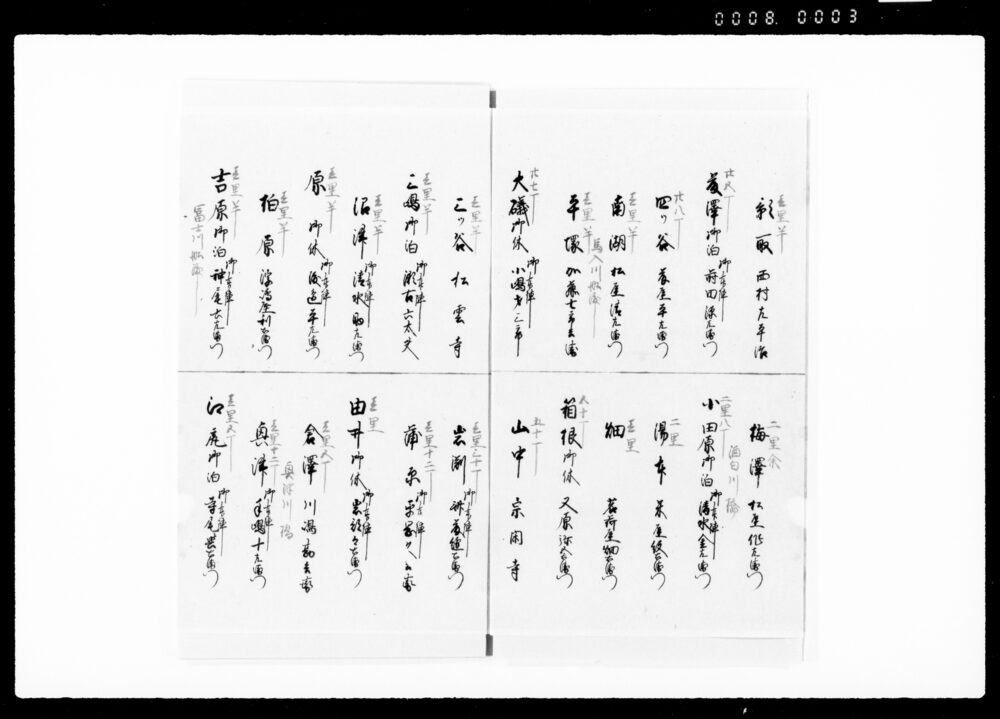 0008. 0003
壱里半
影取 西村左平治
廿九丁
藤澤御泊 御本陣 蒔田源左衛門
廿八丁
四ツ谷 茗屋平左衛門
壱里半
南湖 松屋清左衛門
壱里半
馬入川船渡
平塚 加藤七郎兵衛
廿七丁
大磯御休 御本陣 小嶋才三郎
二里余
梅澤 松屋作左衛門
酒匂川橋
二里八丁
小田原御泊 御本陣 清水金左衛門
二里
湯本 米屋
壱里
畑 茗荷屋畑右衛門
箱根御休 又原弥五左衛門
五十丁
山中 宗閑寺
壱里半
三ツ谷 松雲寺
壱里半
三嶋御泊 御本陣 瀬古六太夫
壱里半
沼津 御本陣 清水助左衛門
壱里半
原 御休 渡邉平左衛門
壱里半
柏原 浮嶋屋利右衛門
壱里半
吉原御泊 御本陣 神尾六左衛門
富士川船渡
壱里三十丁
岩渕 御本陣 斎藤縫右衛門
壱里十二丁
蒲原 御本陣 平岡久兵衛
壱里
由井御休 御本陣 岩邉郷右衛門
壱里九丁
倉澤 川嶋勘兵衛
真津川橋
壱里十二丁
真津 御本陣 手嶋十左衛門
壱里九丁
江尻御泊 御本陣 寺尾與右衛門